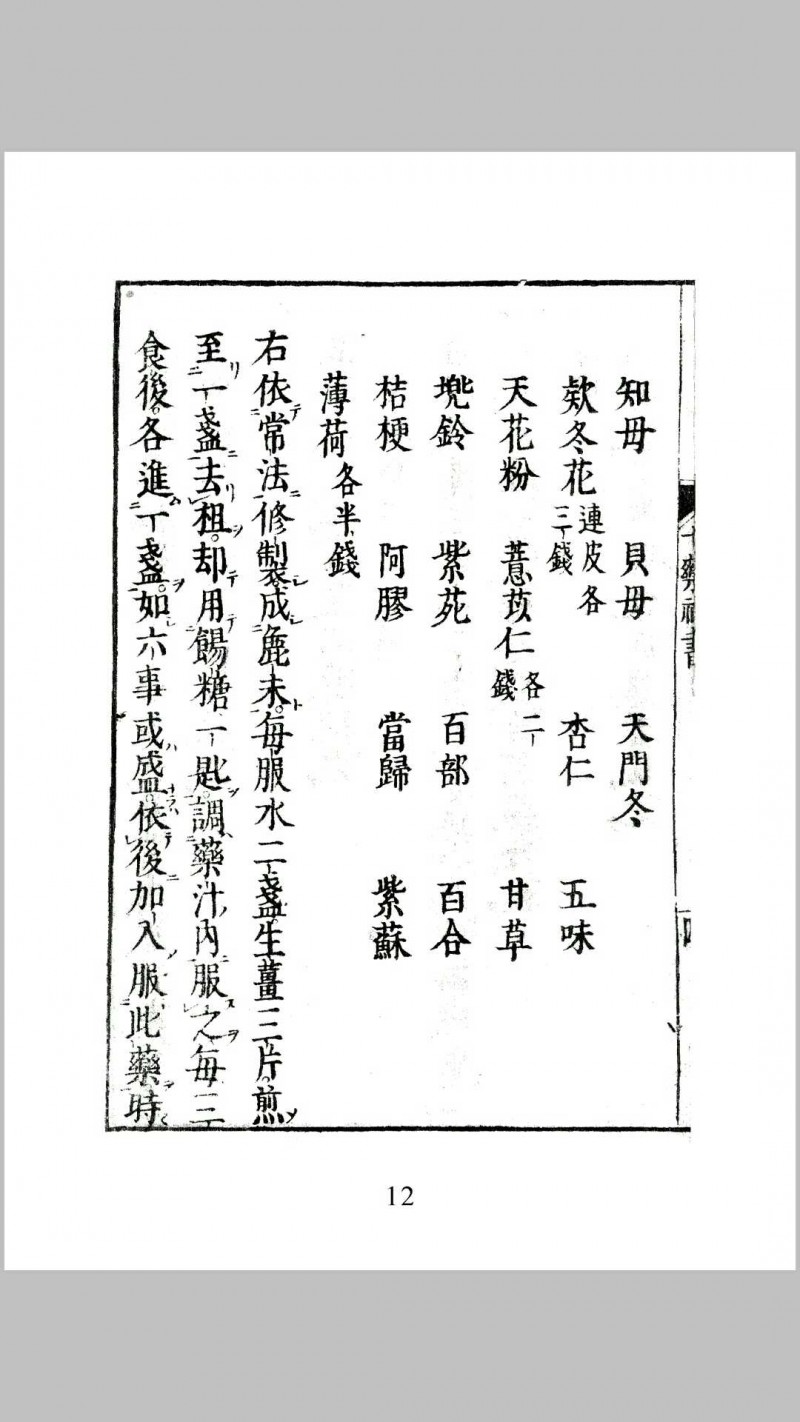 知母　貝母　天門冬
欵冬花連皮各三錢　杏仁　五味
天花粉　薏苡仁各二錢　甘草
兠鈴　紫苑　百部　百合
桔梗　阿膠　當歸　紫蘇
薄荷各半錢
右依常法修製成麄末。每服水二盞。生薑三片。煎
至一盞去柤。却用餳糖一匙。調藥汁內服之每三
食後。各進一盞。如六事或盛。依後加入服此藥時
十藥神書
四
12